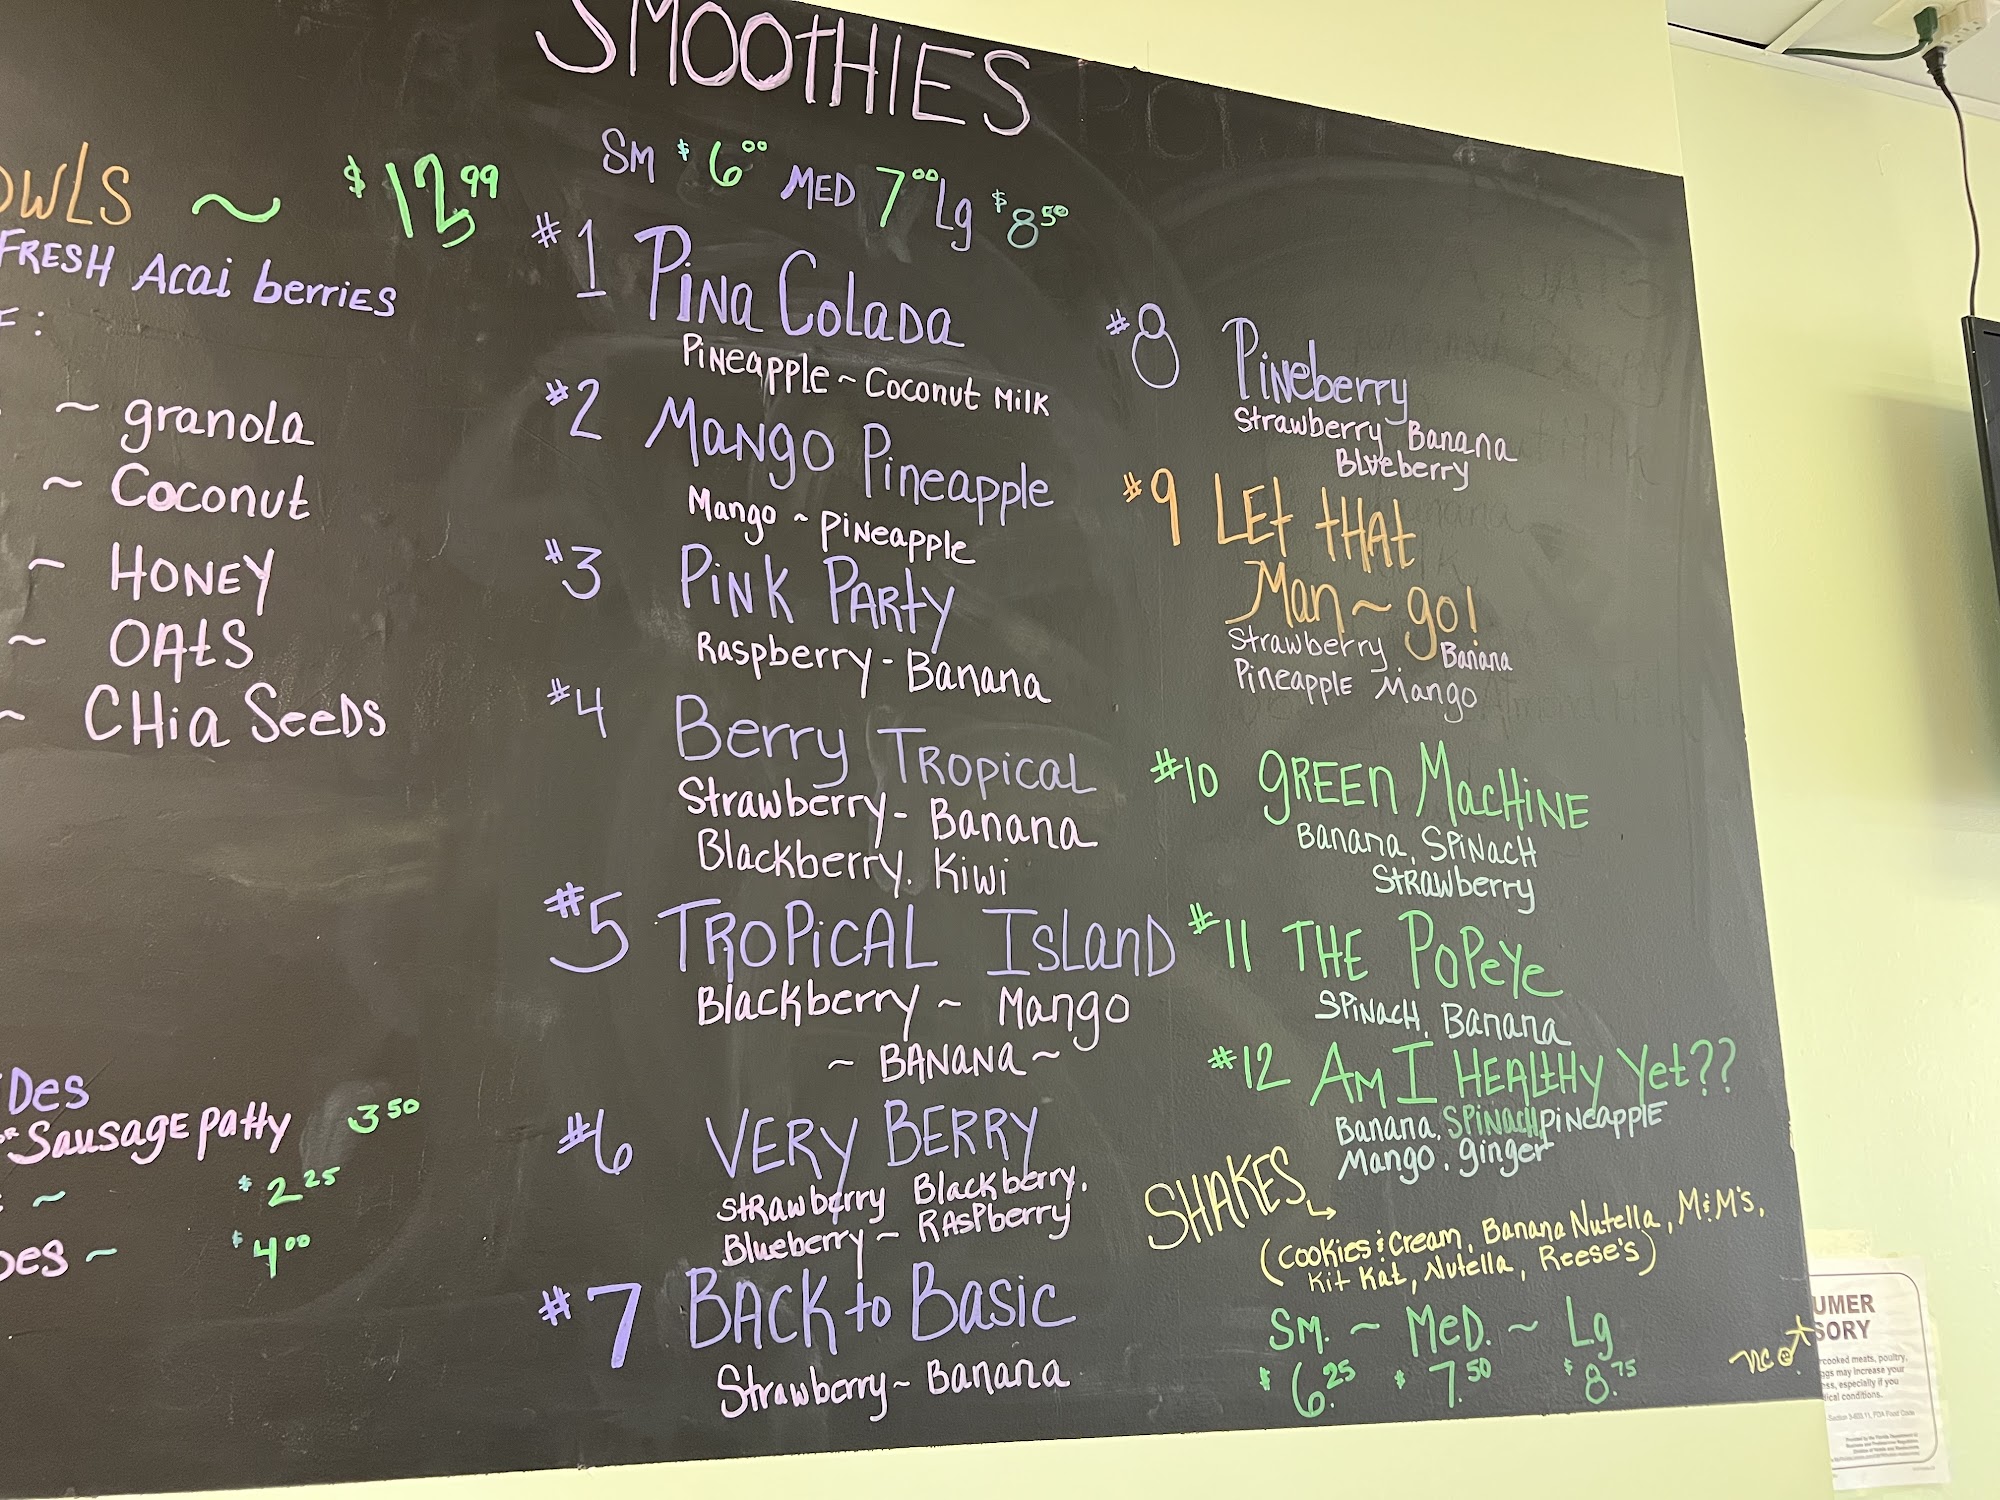 SMOOTHIES
SM $6.00 MED 7.00 Lg $8.50
~ $12.99
FRESH Acai berries
~ granola
~ Coconut
~ HONEY
~ OATS
~ CHia SeeDs
Sausage patty 3.50
~ $2.25
~ $4.00
#1 Pina Colada
Pineapple ~ Coconut Milk
#2 Mango Pineapple
Mango ~ Pineapple
#3 Pink Party
Raspberry - Banana
#4 Berry Tropical
Strawberry - Banana
Blackberry. Kiwi
#5 TROPiCAL Island
Blackberry ~ Mango
~ BANANA ~
#6 VERY BERRY
Strawberry Blackberry.
Blueberry ~ Raspberry
#7 BACK to Basic
Strawberry ~ Banana
#8 Pineberry
Strawberry Banana
Blueberry
#9 LEt tHAt
Man ~ go!
Strawberry. Banana
Pineapple Mango
#10 gREEn MacHiNE
Banana, SPiNacH
Strawberry
#11 THE POPeYe
SPiNacH, Banana
#12 Am I HEAltHy Yet??
Banana, SPiNacH pineapple
Mango. ginger
SHAKES
(Cookies & Cream, Banana Nutella, M&M's,
Kit Kat, Nutella, Reese's)
SM. ~ MeD. ~ Lg
$6.25 $7.50 $8.75
UMER
SORY
rcooked meats, poultry,
may increase your
especially if you
ical conditions.